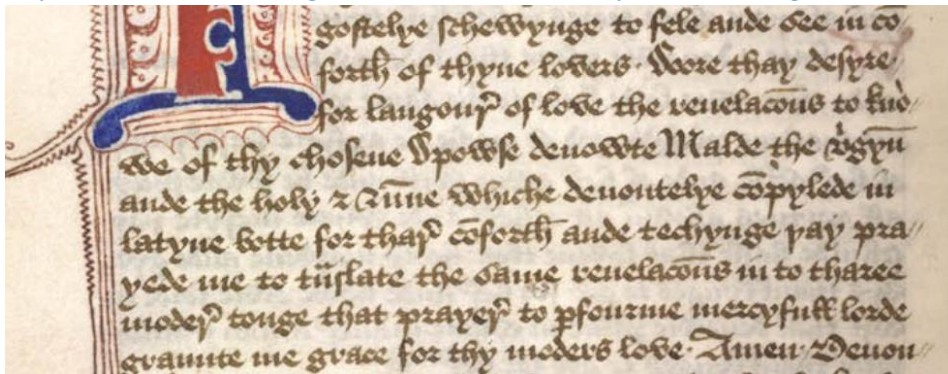 gostelye schewynge to fele ande see in cō
forth of thyne lovers. Wore thay desyre
for langour of love the reuelacōns to kno
we of thy chosene Spowse deuowte Malde the v̓gyn̄
ande the holy ⁊ Nūne whiche deuoutelye cōpylede in
latyne botte for thar cōforth ande techynge yay pra
yede me to tn̄slate the same reuelacōns in to tharee
moder tonge that prayer to ꝑfourme mercyfull lorde
graunte me grace for thy moders love. Amen. Deuou